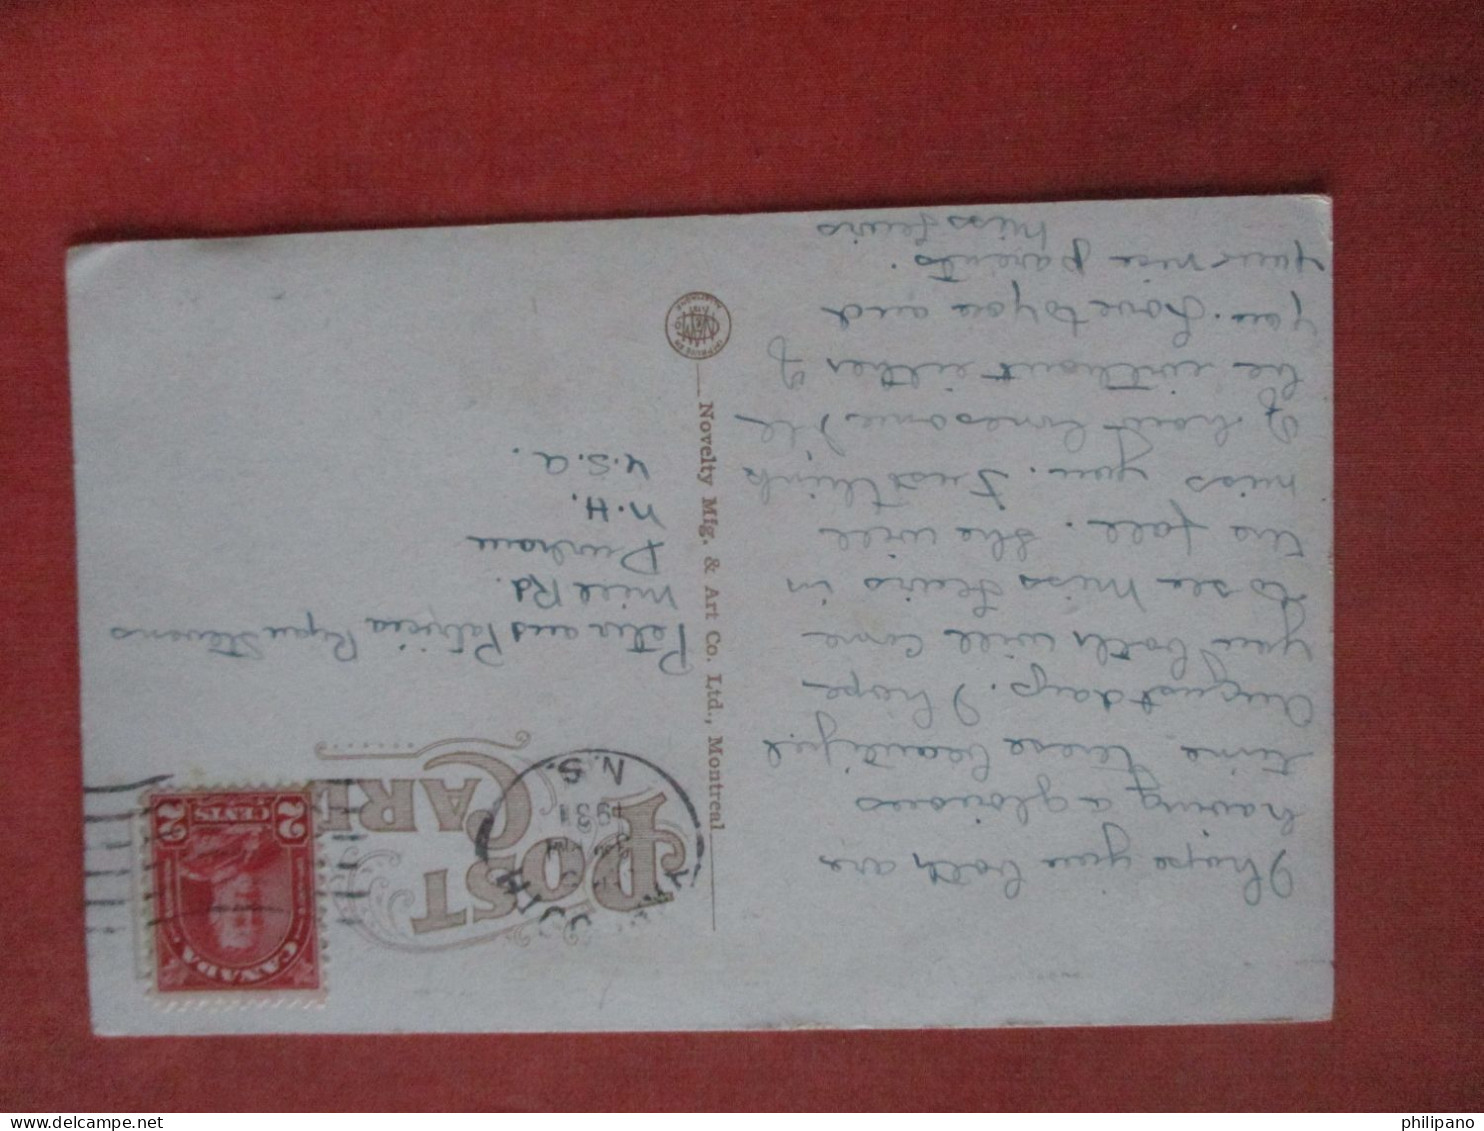 I hope you both are
having a glorious
time these beautiful
August days. I hope
you both will come
to see Miss Lewis in
the fall. She will
miss you. Just think
I how lonesome I'll
be without either of
you. Love to you and
your nice parents.
Miss Lewis
POST
CARD
CANADA
2 CENTS 2
N.S.
PM
1931
Peter and Patricia Ryan Stevens
Mill Rd.
Durham
N.H.
U.S.A.
Novelty Mfg. & Art Co. Ltd., Montreal
philipano